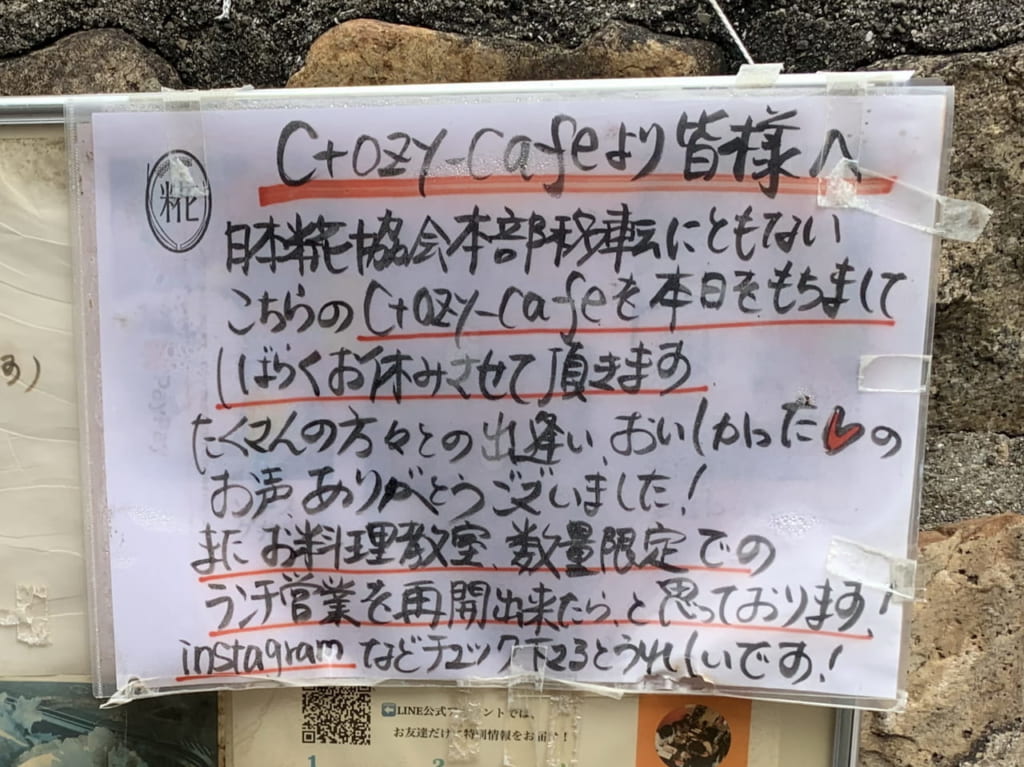 C+ozy-Cafeより皆様へ
糀
日本糀協会本部移転にともない
こちらのC+ozy-cafeを本日をもちまして
しばらくお休みさせて頂きます
たくさんの方々との出逢い、おいしかった♥の
お声、ありがとうございました!
また お料理教室、数量限定での
ランチ営業を再開出来たら、と思っております!
instagramなどチェック下さるとうれしいです!
す)
LINE公式アカウントでは、
お友達だけに特別情報をお届け!